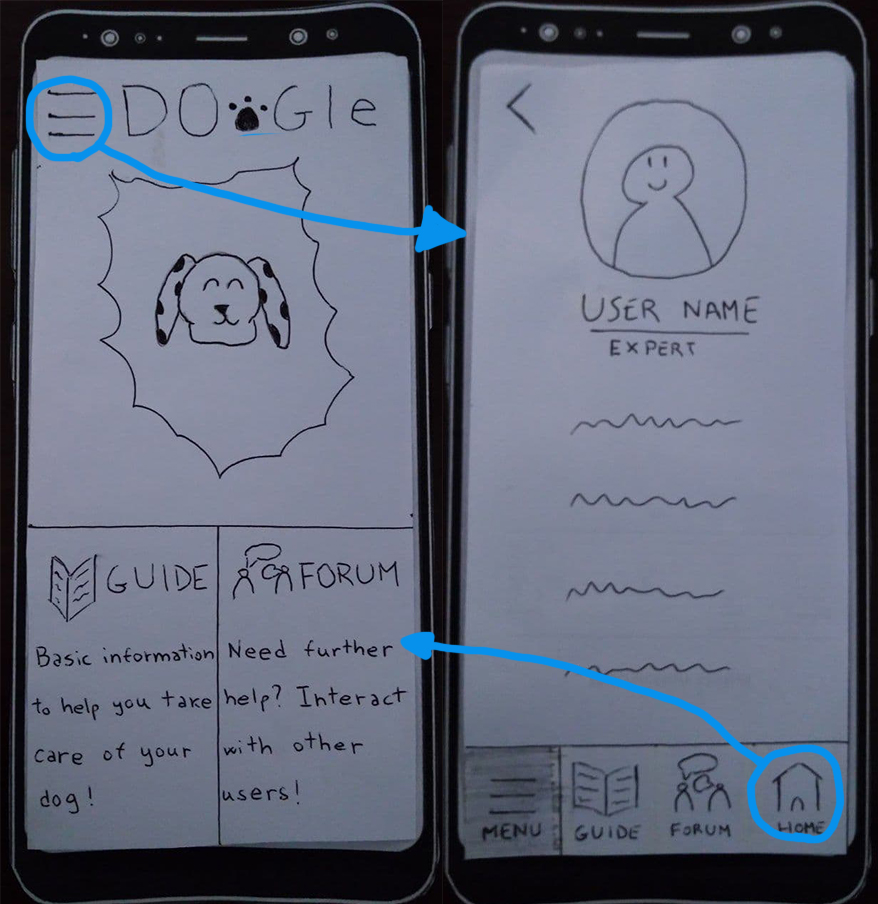 DOGle
GUIDE
Basic information
to help you take
care of your
dog!
FORUM
Need further
help? Interact
with other
users!
USER NAME
EXPERT
MENU
GUIDE
FORUM
HOME